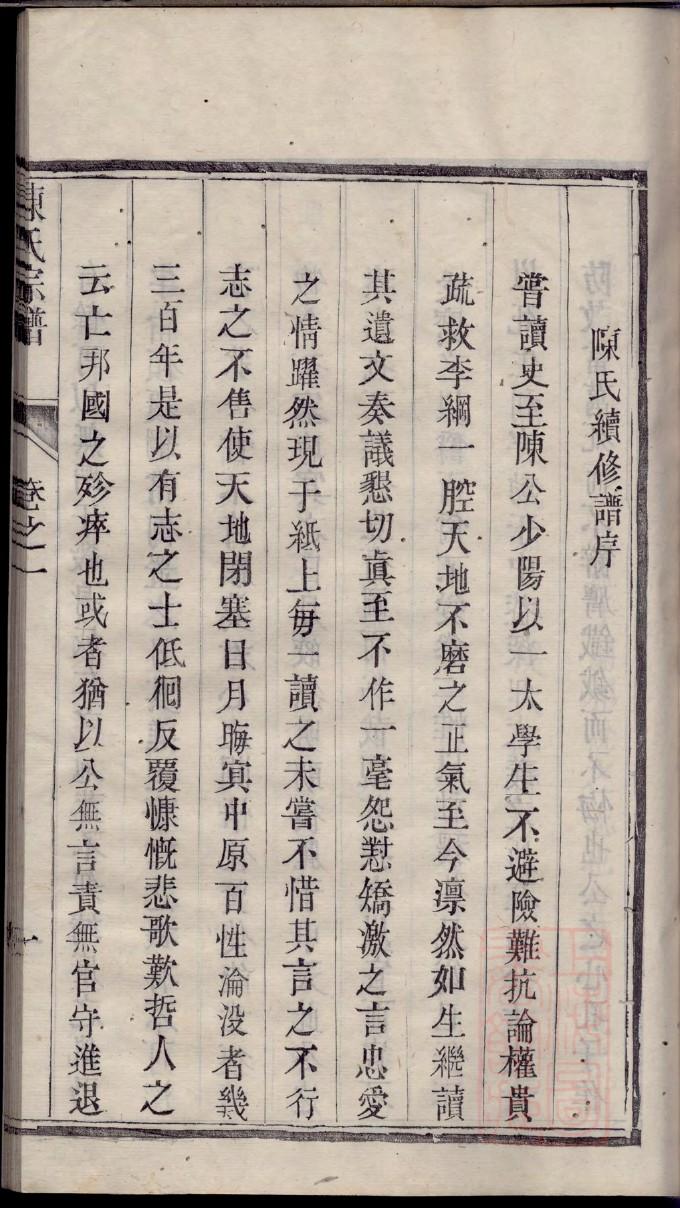 陳氏續修譜序
嘗讀史至陳公少陽以一太學生不避險難抗論權貴
疏救李綱一腔天地不磨之正氣至今凛然如生繼讀
其遺文奏議懇切眞至不作一毫怨懟矯激之言忠愛
之情躍然現于紙上每一讀之未嘗不惜其言之不行
志之不售使天地閉塞日月晦㝠中原百性淪没者幾
三百年是以有志之士低徊反覆慷慨悲歌歎哲人之
云亡邦國之殄瘁也或者猶以公無言責無官守進退
陳氏宗譜
卷之一
一